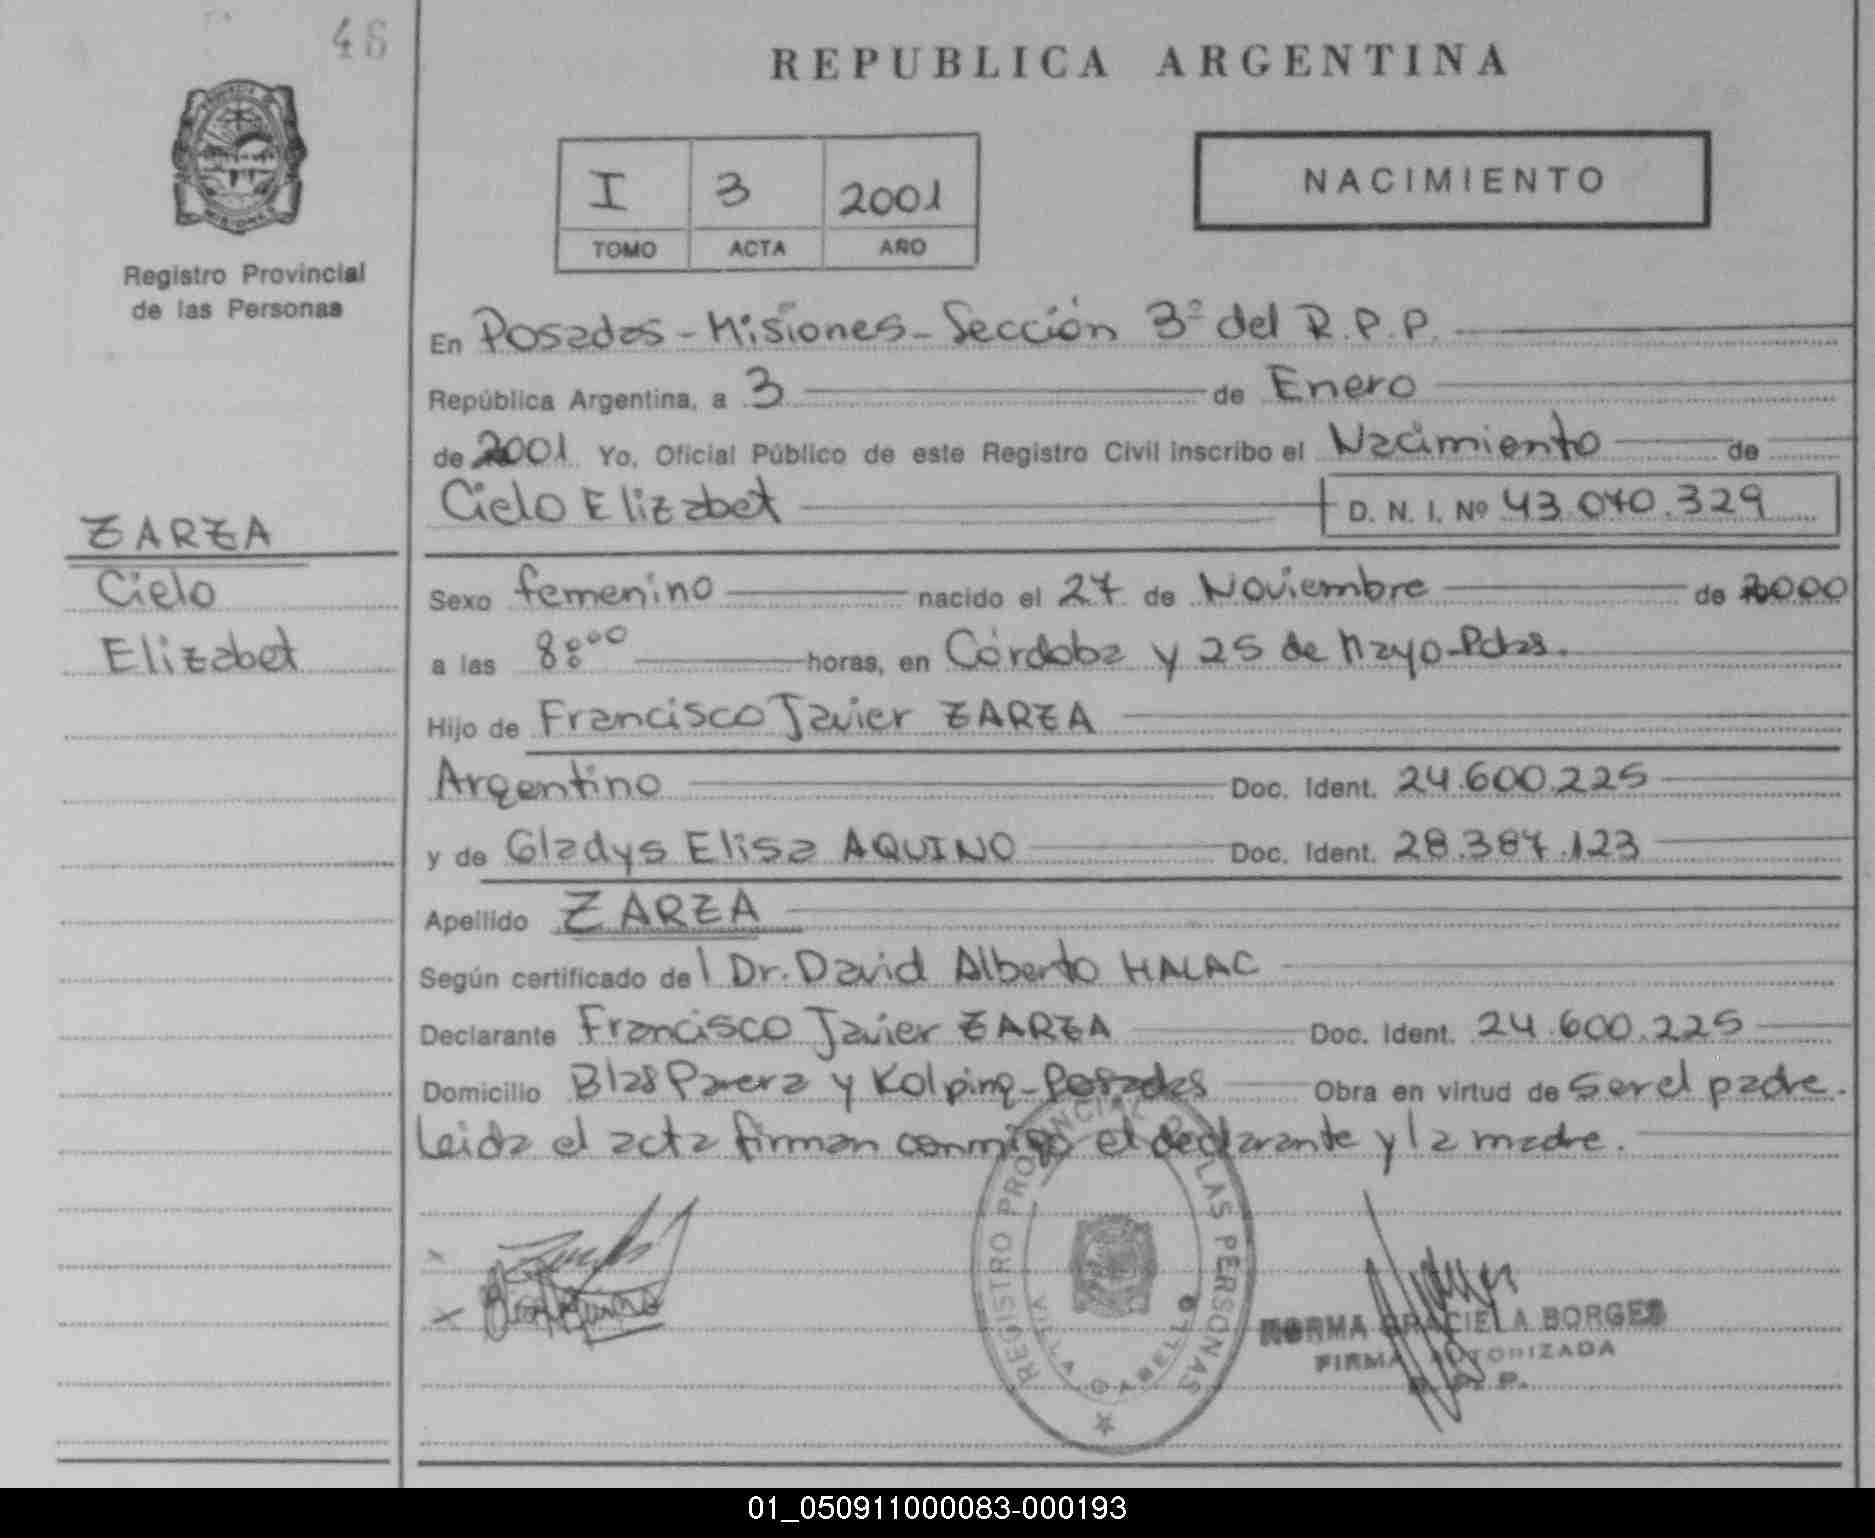 46
REPUBLICA ARGENTINA
PROVINCIA DE
MISIONES
Registro Provincial
de las Personas
I 3 2001
TOMO ACTA AÑO
NACIMIENTO
En Posadas - Misiones - Sección 3º del R.P.P.
República Argentina, a 3 de Enero
de 2001 Yo, Oficial Público de este Registro Civil inscribo el Nacimiento de
Cielo Elizabet D. N. I. Nº 43.040.329
ZARZA
Cielo
Elizabet
Sexo femenino nacido el 27 de Noviembre de 2000
a las 8:00 horas, en Córdoba y 25 de Mayo-Pdas.
Hijo de Francisco Javier ZARZA
Argentino Doc. Ident. 24.600.225
y de Gladys Elisa AQUINO Doc. Ident. 28.387.123
Apellido ZARZA
Según certificado del Dr. David Alberto HALAC
Declarante Francisco Javier ZARZA Doc. Ident. 24.600.225
Domicilio Blas Parera y Kolping-Posadas Obra en virtud de ser el padre.
Leida el acta firman conmigo el declarante y la madre.
REGISTRO PROVINCIAL DE LAS PERSONAS
VILLA CABELLO
NORMA GRACIELA BORGES
FIRMA AUTORIZADA
R. P. P.
01_050911000083-000193